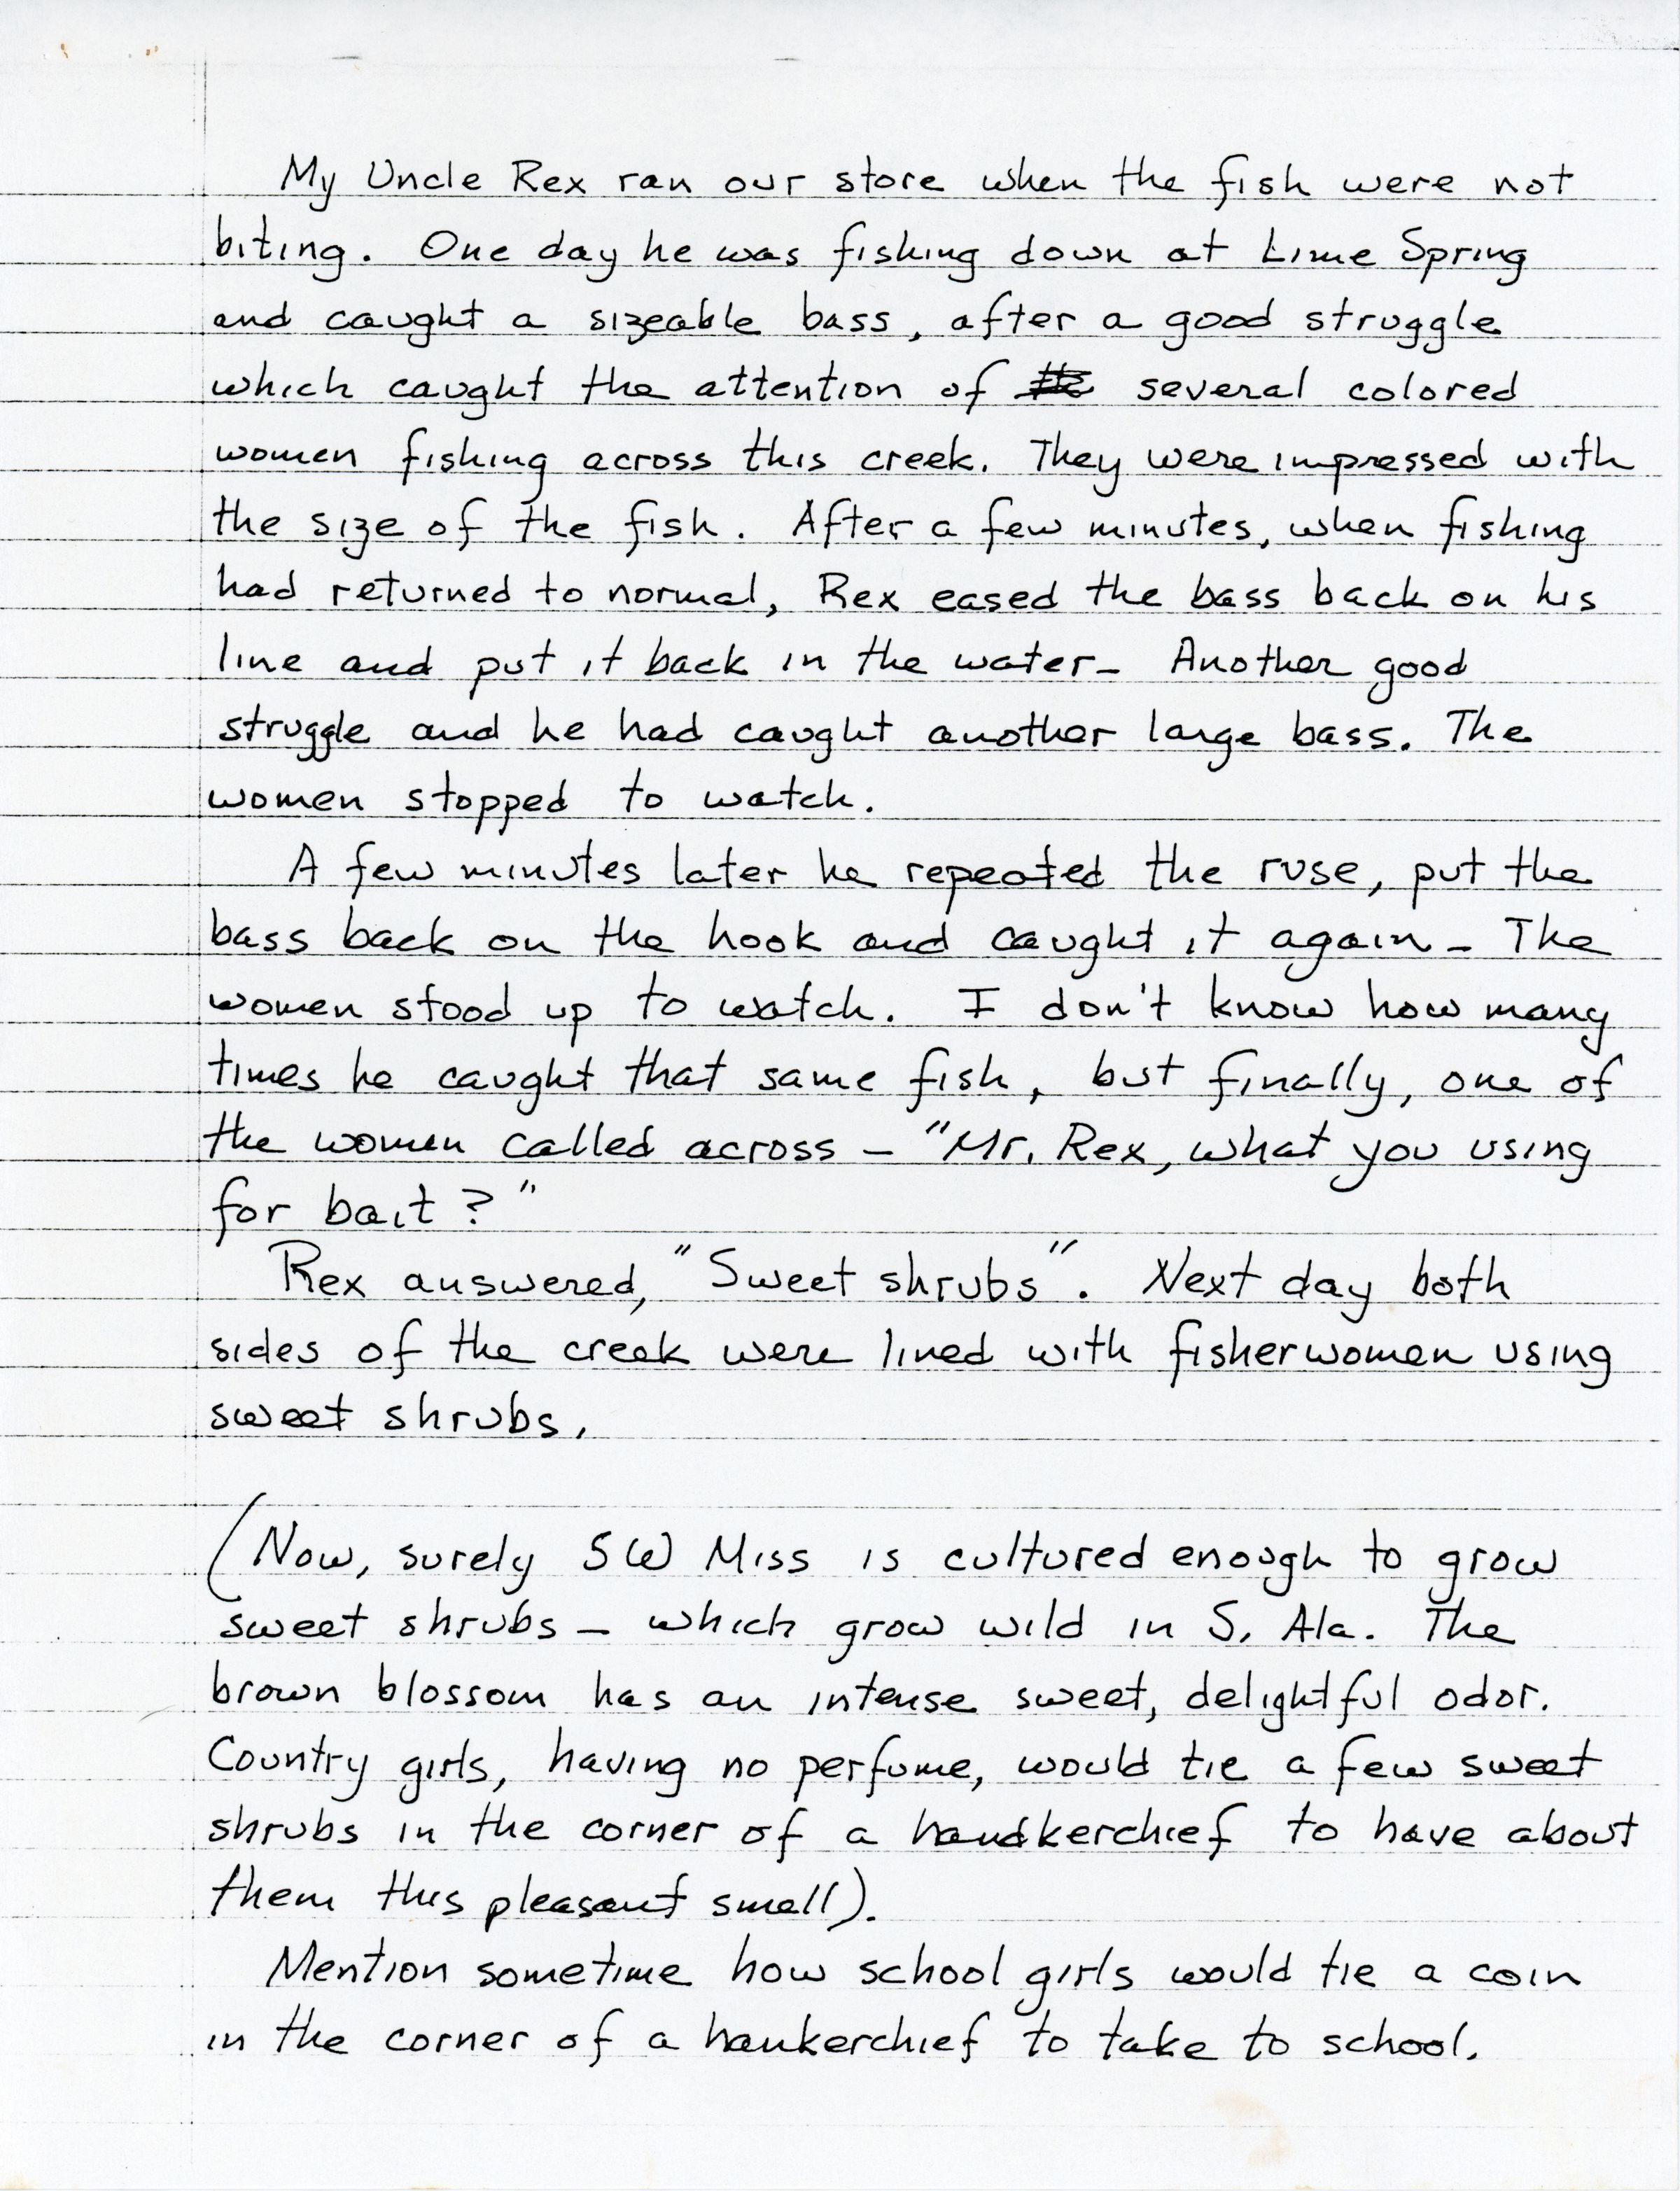 My Uncle Rex ran our store when the fish were not
biting. One day he was fishing down at Lime Spring
and caught a sizeable bass, after a good struggle
which caught the attention of several colored
women fishing across this creek. They were impressed with
the size of the fish. After a few minutes, when fishing
had returned to normal, Rex eased the bass back on his
line and put it back in the water - Another good
struggle and he had caught another large bass. The
women stopped to watch.
A few minutes later he repeated the ruse, put the
bass back on the hook and caught it again - The
women stood up to watch. I don't know how many
times he caught that same fish, but finally, one of
the women called across - "Mr. Rex, what you using
for bait?"
Rex answered, "Sweet shrubs". Next day both
sides of the creek were lined with fisherwomen using
sweet shrubs.
(Now, surely SW Miss is cultured enough to grow
sweet shrubs - which grow wild in S. Ala. The
brown blossom has an intense sweet, delightful odor.
Country girls, having no perfume, would tie a few sweet
shrubs in the corner of a handkerchief to have about
them this pleasant smell).
Mention sometime how school girls would tie a coin
in the corner of a hankerchief to take to school.